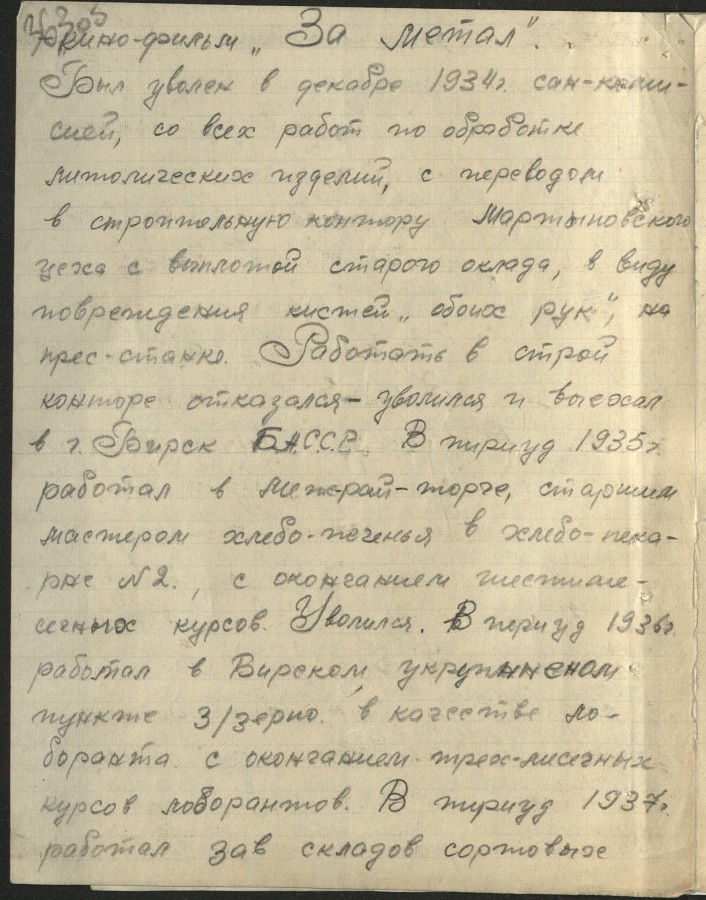 кино-фильм „За метал".
Был уволен в декабре 1934г. сан-коми-
сией, со всех работ по обработке
митолических изделий, с переводом
в строительную контору Мартыновского
цеха с выплотой старого оклада, в виду
повреждения кистей „обоих рук", на
прес-станке. Работать в строй
конторе отказался – уволился и выехал
в г. Бирск БАССР. В пириуд 1935г.
работал в меж-рай-торге, старшим
мастером хлебо-печенья в хлебо-пека-
рне №2., с окончанием шестиме-
сечных курсов. Уволился. В периуд 1936г.
работал в Бирском, укрупнненом
пункте З/зерно. в качестве ло-
боранта с окончанием трех-мисечных
курсов лоборантов. В пириуд 1937г.
работал зав складов сортовых